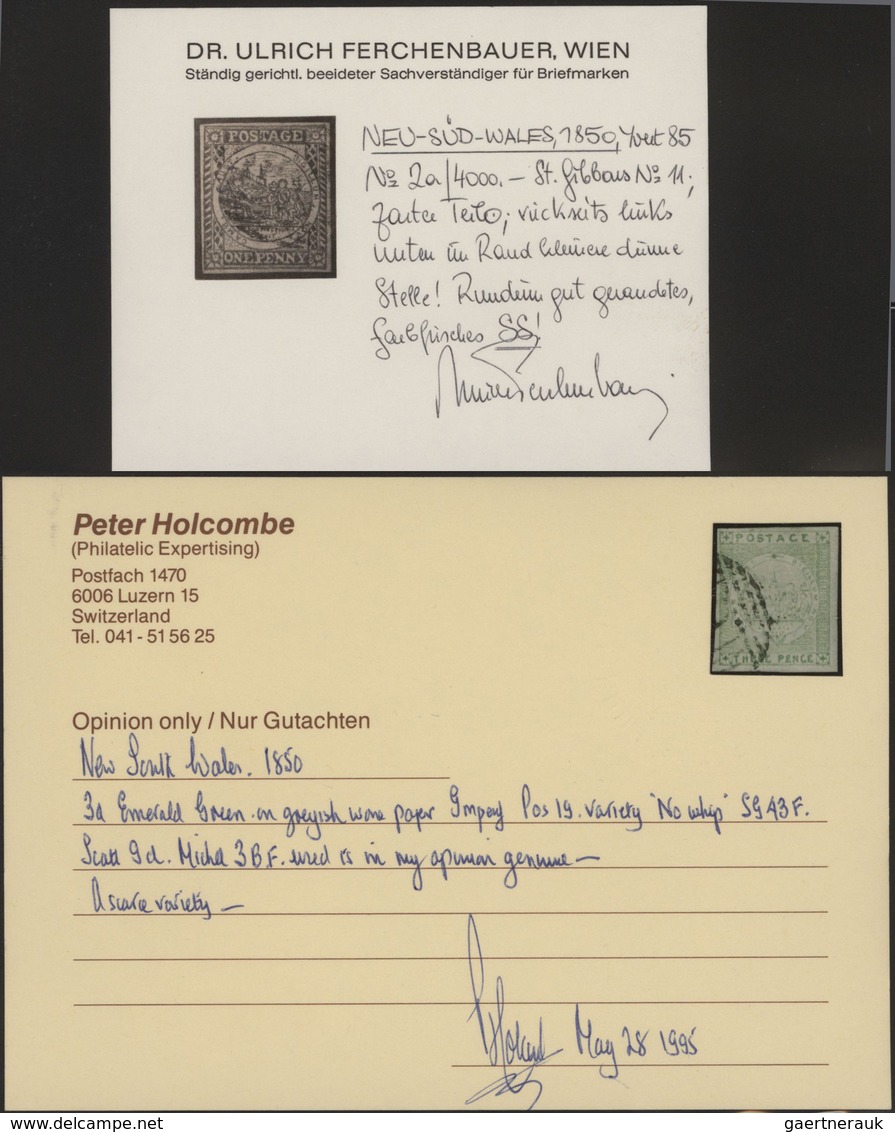 DR. ULRICH FERCHENBAUER, WIEN
Ständig gerichtl. beeideter Sachverständiger für Briefmarken
POSTAGE
ONE PENNY
NEU-SÜD-WALES, 1850, Yvert 85
No 2a/4000.- St. Gibbons No 11;
zarter Teilo; rückseits links
unten im Rand kleinere dünne
Stelle! Rundum gut gerandetes,
farbfrisches SS!
Peter Holcombe
(Philatelic Expertising)
Postfach 1470
6006 Luzern 15
Switzerland
Tel. 041 - 51 56 25
POSTAGE
THREE PENCE
Opinion only / Nur Gutachten
New South Wales. 1850
3d Emerald Green on greyish wove paper Imperf Pos 19. variety "No whip" SG43F.
Scott 9d. Michel 3B.F. used is in my opinion genuine—
A scarce variety—
May 28 1995
gaertnerauk @ delcampe.net